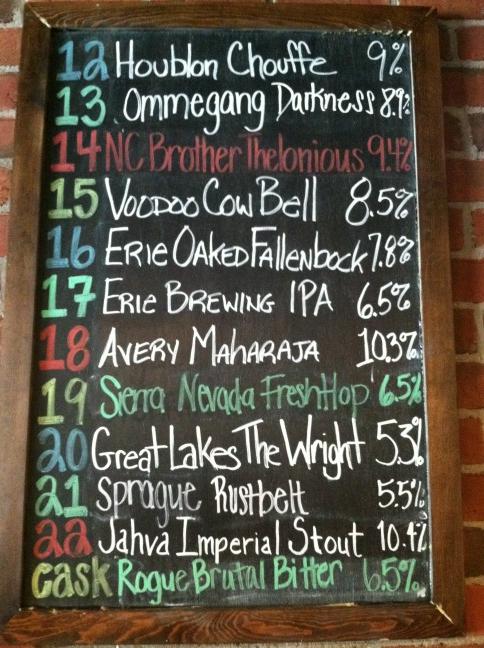 12 Houblon Chouffe 9%
13 Ommegang Darkness 8.9%
14 NC Brother Thelonious 9.4%
15 Voodoo Cow Bell 8.5%
16 Erie Oaked Fallenbock 7.8%
17 Erie Brewing IPA 6.5%
18 Avery Maharaja 10.3%
19 Sierra Nevada Fresh Hop 6.5%
20 Great Lakes The Wright 5.3%
21 Sprague Rustbelt 5.5%
22 Jahva Imperial Stout 10.4%
Cask Rogue Brutal Bitter 6.5%